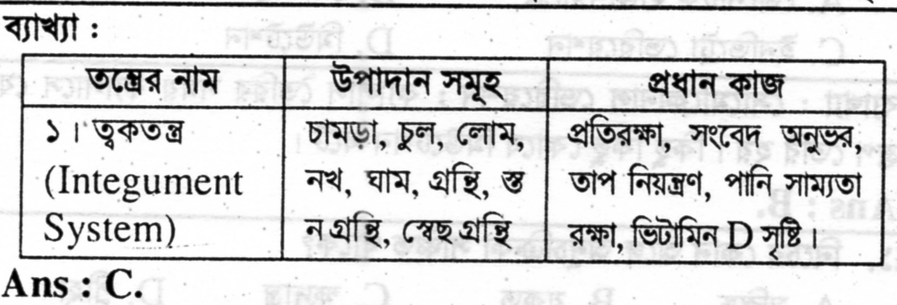 ব্যাখ্যা :
তন্ত্রের নাম উপাদান সমূহ প্রধান কাজ
১। ত্বকতন্ত্র চামড়া, চুল, লোম, প্রতিরক্ষা, সংবেদ অনুভর,
(Integument নখ, ঘাম, গ্রন্থি, স্ত তাপ নিয়ন্ত্রণ, পানি সাম্যতা
System) ন গ্রন্থি, স্বেছ গ্রন্থি রক্ষা, ভিটামিন D সৃষ্টি।
Ans : C.